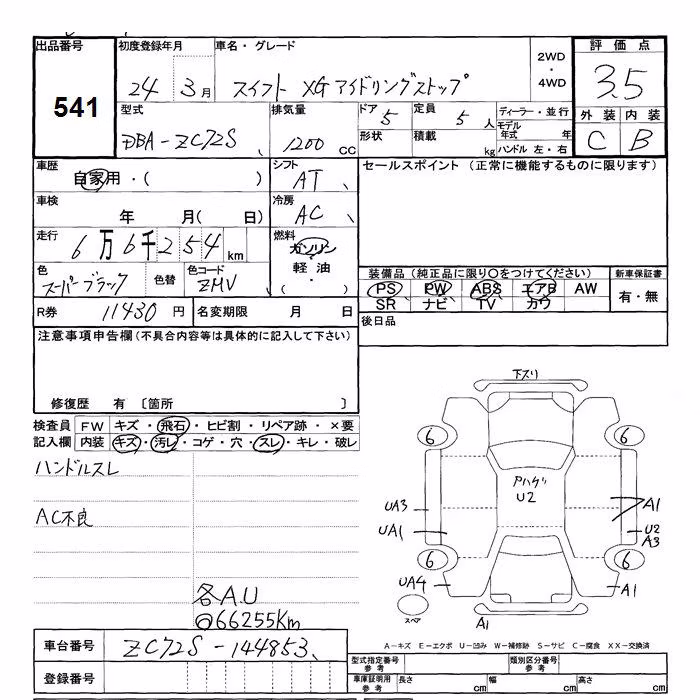 出品番号 初度登録年月 車名・グレード 評価点
541 24 3月 スイフト XGアイドリングストップ 2WD・4WD 3.5
型式 排気量 ドア 5 定員 5人 ディーラー・並行 外装 内装
DBA-ZC72S 1200 CC 形状 積載 kg モデル年式 年 C B
ハンドル 左・右
車歴 自家用・( ) シフト AT セールスポイント (正常に機能するものに限ります)
車検 年 月( 日) 冷房 AC
走行 6万6千254km 燃料 ガソリン・軽油・( )
色 スーパーブラック 色替 色コード ZMV
装備品 (純正品に限り○をつけてください) 新車保証書
PS PW ABS エアB AW 有・無
SR ナビ TV カワ
R券 11430円 名変期限 月 日 後日品
注意事項申告欄 (不具合内容等は具体的に記入して下さい)
修復歴 有 〔箇所 〕
検査員 FW キズ・飛石・ヒビ割・リペア跡・×要
記入欄 内装 キズ・汚レ・コゲ・穴・スレ・キレ・破レ
ハンドルスレ
AC不良
各A.U
66255Km
下スリ
6 6
U2
UA3 A1
UA1 U2
A3
6 6
UA4 A1
スペア
A1
A-キズ E-エクボ U-凹み W-補修跡 S-サビ C-腐食 XX-交換済
車台番号 ZC72S-144853
型式指定番号 参考 類別区分番号 参考
登録番号 車庫証明用 参考 長さ cm 幅 cm 高さ cm